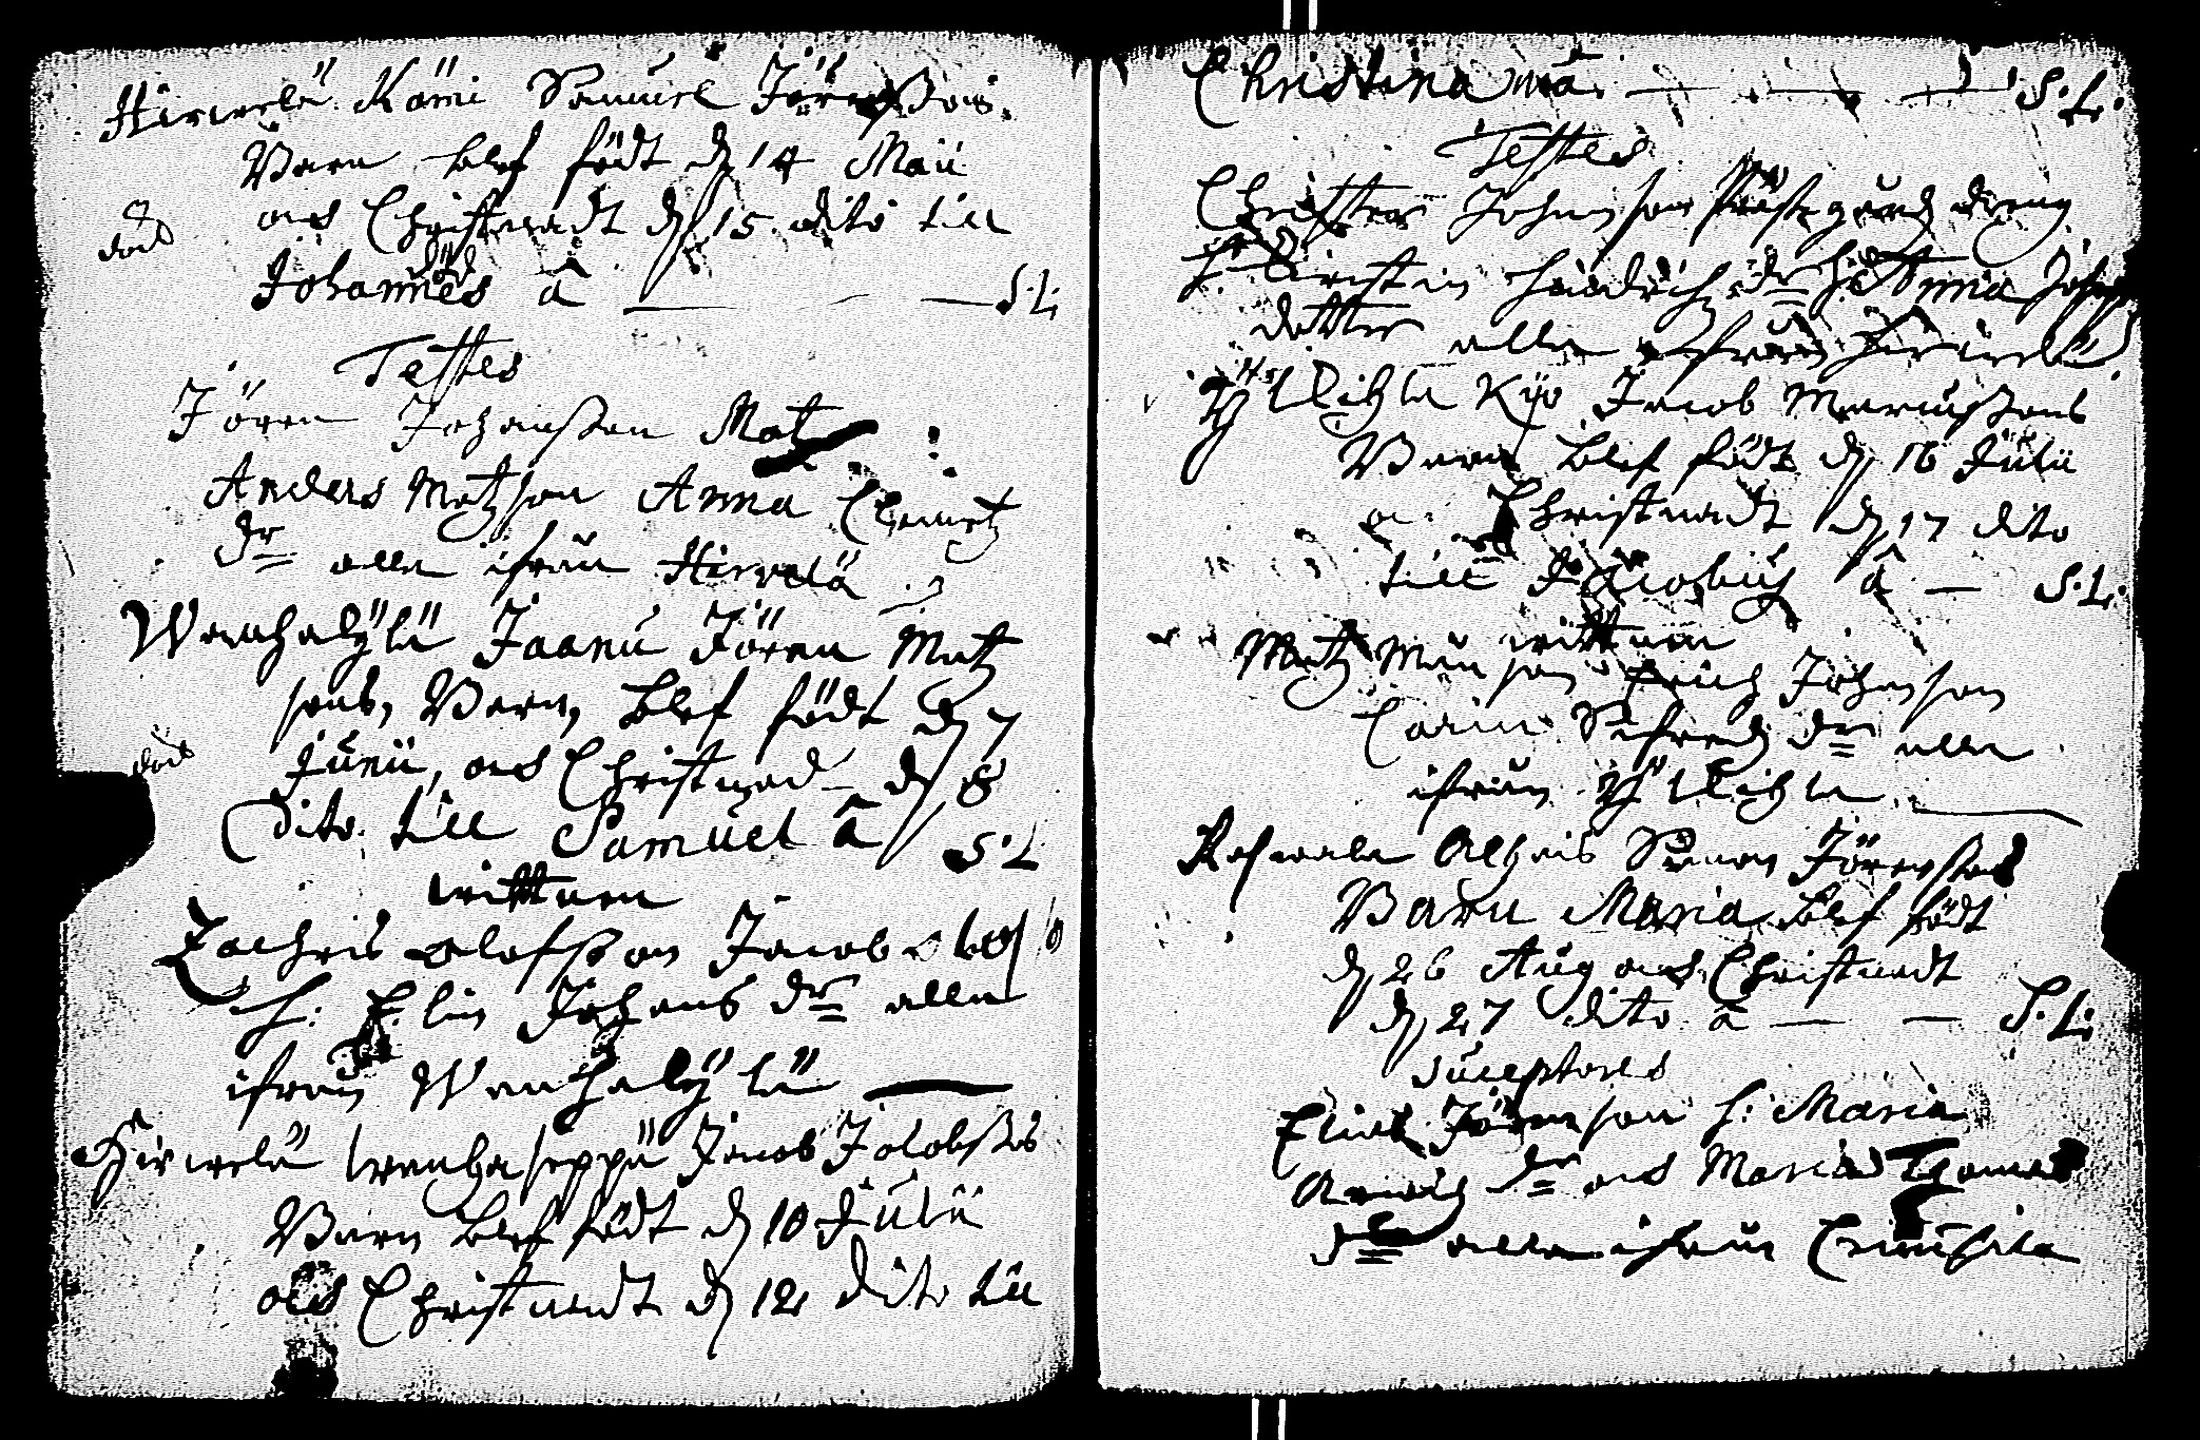 Hirvelä Kämi Samuel Jörenßons
Barn blef födt d 14 Maii
död
och Christnadt d 15 dito till
Johannes â — S.L.
Testes
Jören Johanßon Matz
Anders Matzson Anna Clemetz
dr alla ifrån Hirvelä
Wanhakÿlä Jaanu Jören Matz
sons, Barn, blef födt d 7
död
Junii, och Christnad d 8
Dito till Samuel â S.L
wittnen
Zachris olofßon Jacob
h: Elin Johans dr alla
ifrån Wanhakÿlä
Hirwelä wanhaseppä Jacob Jacobßons
Barn blef födt d 10 Julii
och Christnadt d 12 dito till
Christina â — S.L.
Testes
Christer Johansson dräng
h. Kirstin Hindrichz dr h. Anna Joseph
dotter alla ifrån Hirvelä
Kÿlä Jacob Marcußons
Barn blef födt d 16 Julii
Christnadt d 17 dito
till Jacobus â — S.L.
wittnen
Matz Månson Erich Johanson
Carin Sifredz dr alla
ifrån
Simon Jörenßons
Barn Maria blef födt
d 26 Aug och Christnadt
d 27 dito â — S.L.
suceptores
Elias Jörenson h: Maria
dr och Maria Thomas
dr alla ifrån